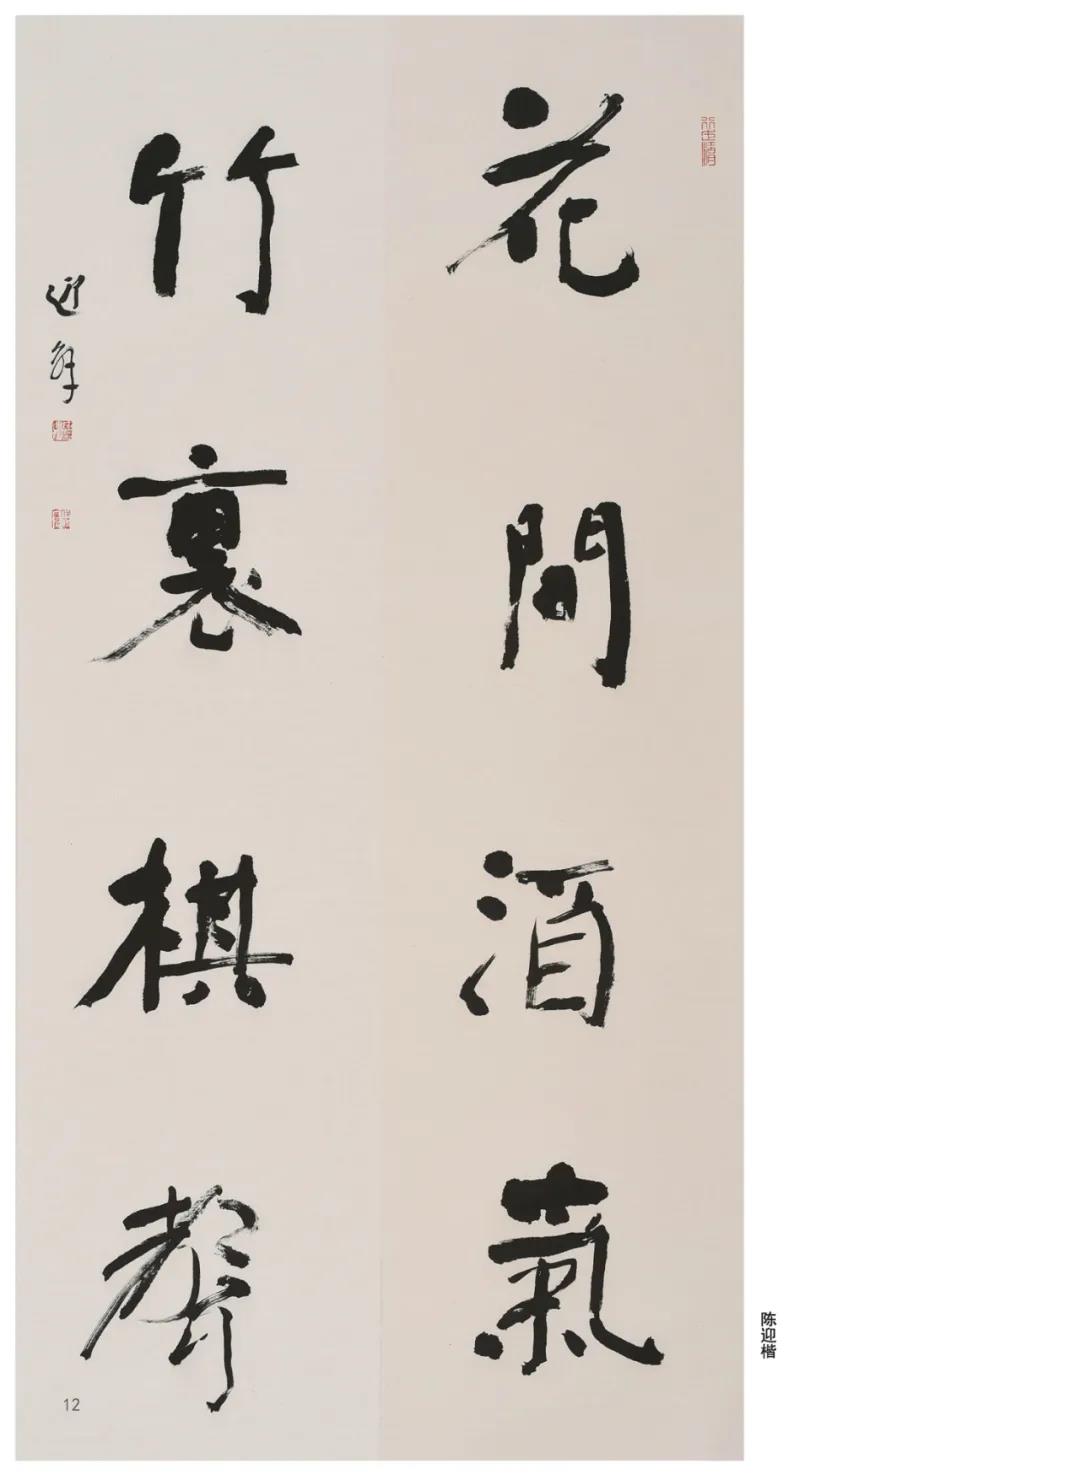 花間酒氣
竹裏棋聲
迎
陈迎楷
12